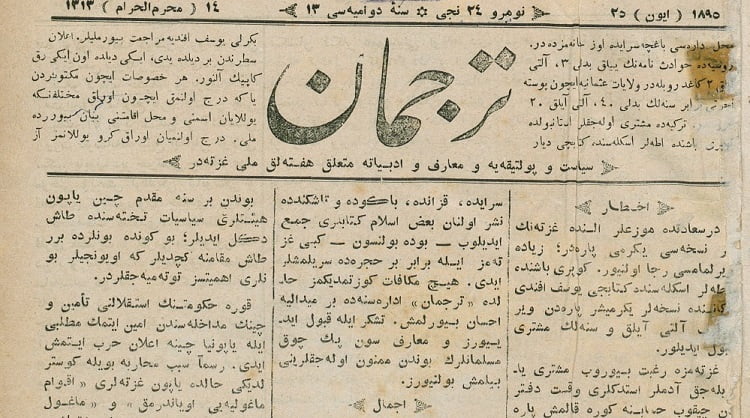 ١٨٩٥ ( ایون ) ٢٥
نومرو ٢٤ نجی ✡ سنۀ دوامیه‌سی ١٣
١٤ ( محرم الحرام ) ١٣١٣
محل اداره‌سی باغچه‌سرایده اوز خانه‌مزده در.
روسیه‌ده حوادث نامه‌نك ییللق بدلی ٣، آلتی
آیلق ٢ كاغد روبله‌در ولایات عثمانیه ایچون پوسته
بر سنه‌لك بدلی ٤٠، آلتی آیلق ٢٠
تركیه‌ده مشتری اوله‌جقلر استانبولده
باشنده اطه‌لر اسكله‌سنده كتابچی دیار
ترجمان
بكرلی یوسف افندیه مراجعت بیورملیلر. اعلان
سطرندن بر دیلده یدی، ایكی دیلده اون ایكی رق
كاپیك آلنور. هر خصوصات ایچون مكتوبدن
یا كه درج اولنمق ایچون اوراق مختلفه‌كه
یوللایان اسمنی و محل اقامتنی بیان بیورده
ملی. درج اولنمیان اوراق كرو یوللانمز آز
سیاست و پولتیقه‌یه و معارف و ادبیاته متعلق هفته‌لق ملی غزته‌در
اخطار
درسعادتده موزعلر النده غزته‌نك
نسخه‌سی یكرمی پاره‌در؛ زیاده
ویرلمامسی رجا اولنیور. كوپری باشنده
اطه‌لر اسكله‌سنده كتابچی یوسف افندی
دكاننده نسخه‌لر یكرمیشر پاره‌دن ویر
آلتی آیلق و سنه‌لك مشتری
قبول ایدیلور.
غزته‌مزه رغبت بیوروب مشتری یا-
یله‌جق آدملر استدكلری وقت دفتر
سرایده، قزانده، باكوده و تاشكندده
نشر اولنان بعض اسلام كتابلری جمع
ایدیلوب — بوده بولنسون — كبی غز
ته‌مز ایله برابر بر حجره‌ده سریلمشلر
ایدی. هیچ مكافات كوزتمدیكمز حا-
لده «ترجمان» اداره‌سنده بر میدالیه
احسان بیورلمش. تشكر ایله قبول اید-
ییورز و معارف سون پك چوق
مسلمانلرك بوندن ممنون اوله‌جقلرینی
بیلمش بولنیورز.
اجمال
بوندن بر سنه مقدم چین یاپون
هیئتلری سیاسیات تخته‌سنده طاش
دكل ایدیلر؛ بو كونده بونلرده برر
طاش مقامنه كچدیلر كه اوینجیلر بو
نلری اهمیتسز توته‌میه‌جقلردر.
قوره حكومتنك استقلالنی تأمین و
چینك مداخله‌سندن امین ایتمك مطلبی
ایله یاپونیا چینه اعلان حرب ایتمش
ایدی. رسمآ سبب محاربه بویله كوستر
لدیكی حالده یاپون غزته‌لری «اقوام
ماغولیه‌یی اویاندرمق» و «ماغول